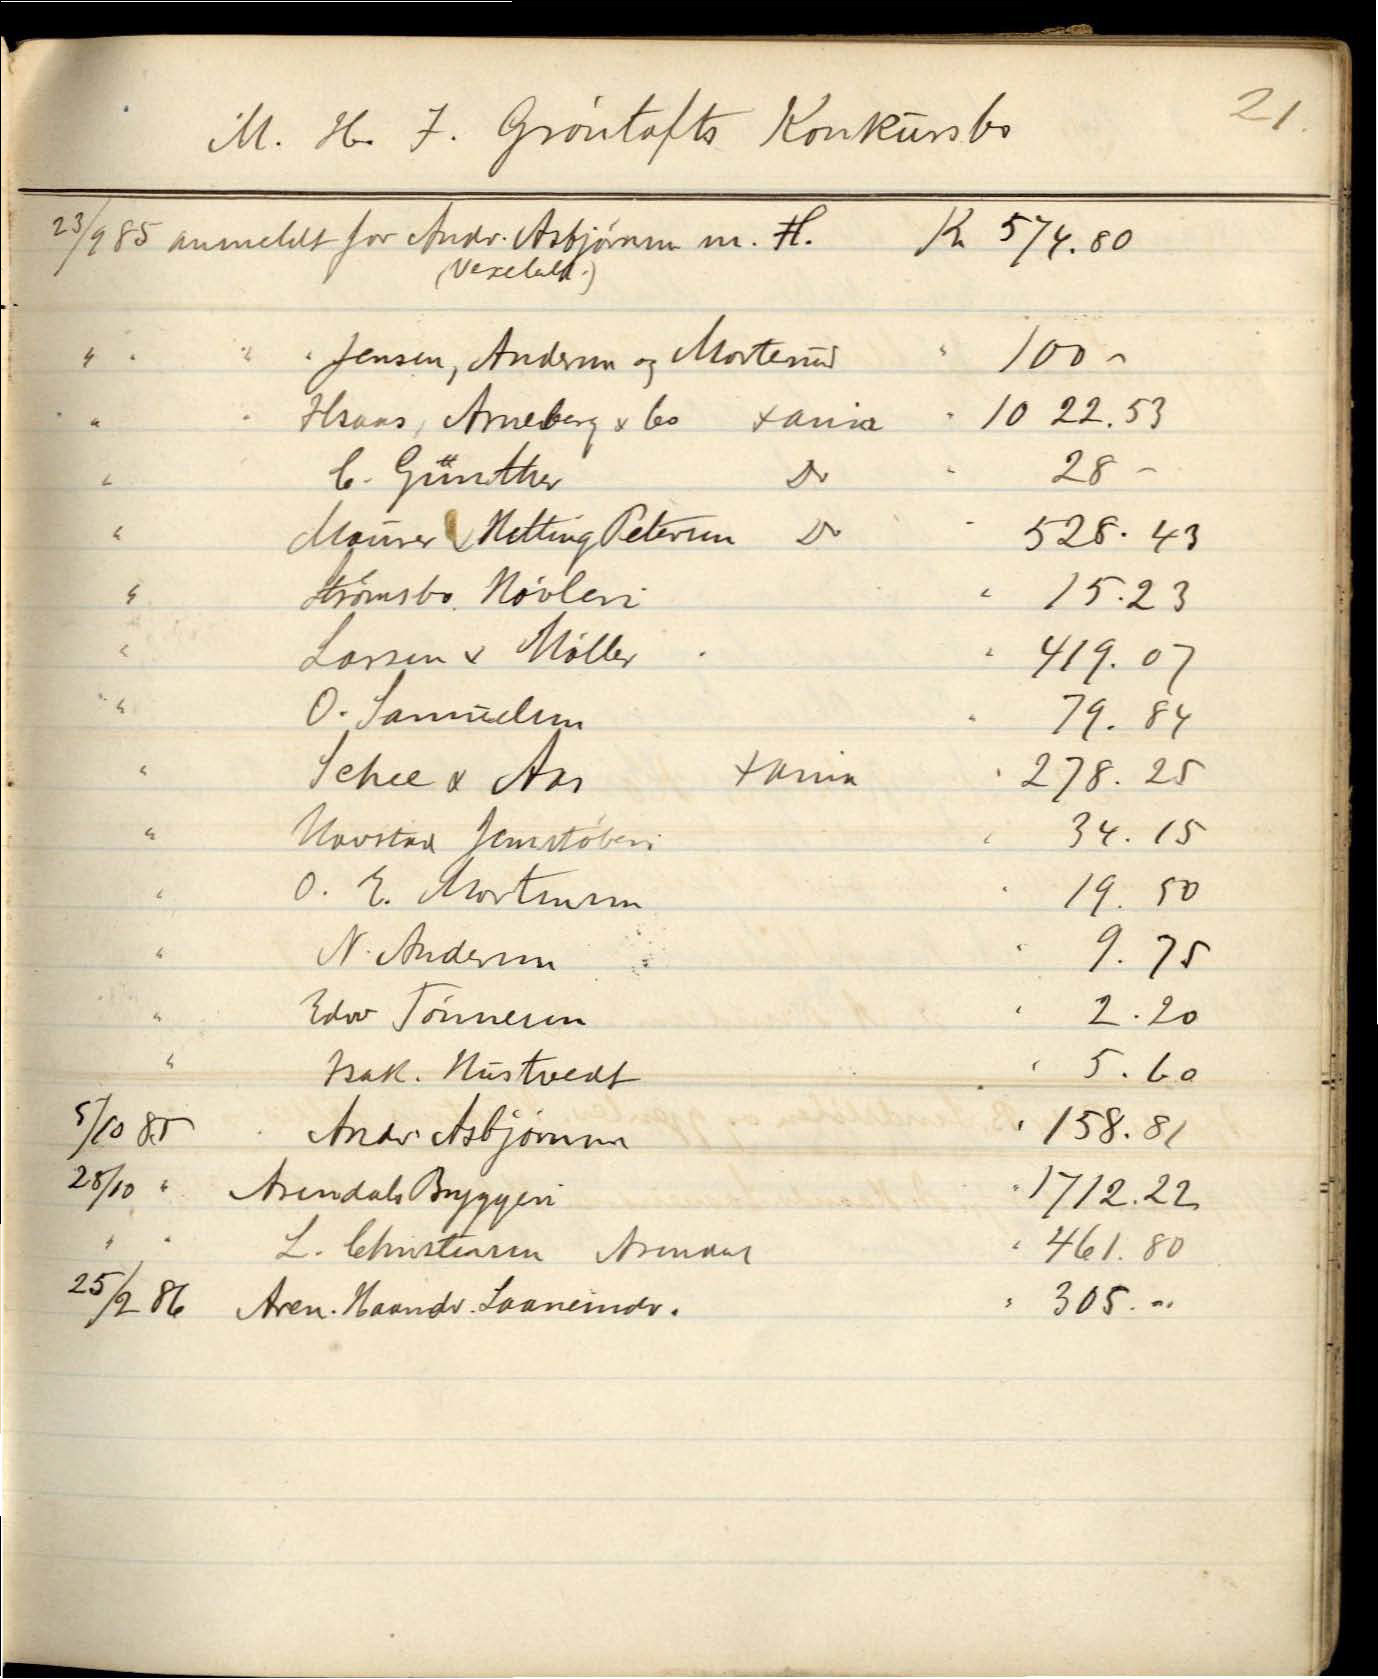 21.
M. H. F. Gróntofts Konkursbo
23/9 85 anmeldt for Andr. Asbjórnsen m. fl. Kr 574.80
(Vexeluld.)
" " " " Jensen, Andersen og Mortensen " 100 -
" " Haans, Arneberg & Co Xania " 1022.53
" C. Günther Do " 28 -
" Maurer & Hetting Petersen Do " 528.43
" Strömsbo Hóvleri " 15.23
" Larsen & Móller " 419.07
" O. Samuelsen " 79.84
" Schee & Aas Xania " 278.25
" Havstad Jernstóberi " 34.15
" O. E. Mortensen " 19.50
" N. Andersen " 9.75
" Edw Tónnesen " 2.20
" Isak. Hustvedt " 5.60
5/10 85 " Andr. Asbjórnsen " 158.81
28/10 " Arendals Bryggeri " 1712.22
" " L. Christensen Arendal " 461.80
25/2 86 Aren. Haandv. Laaneindr. " 305. "